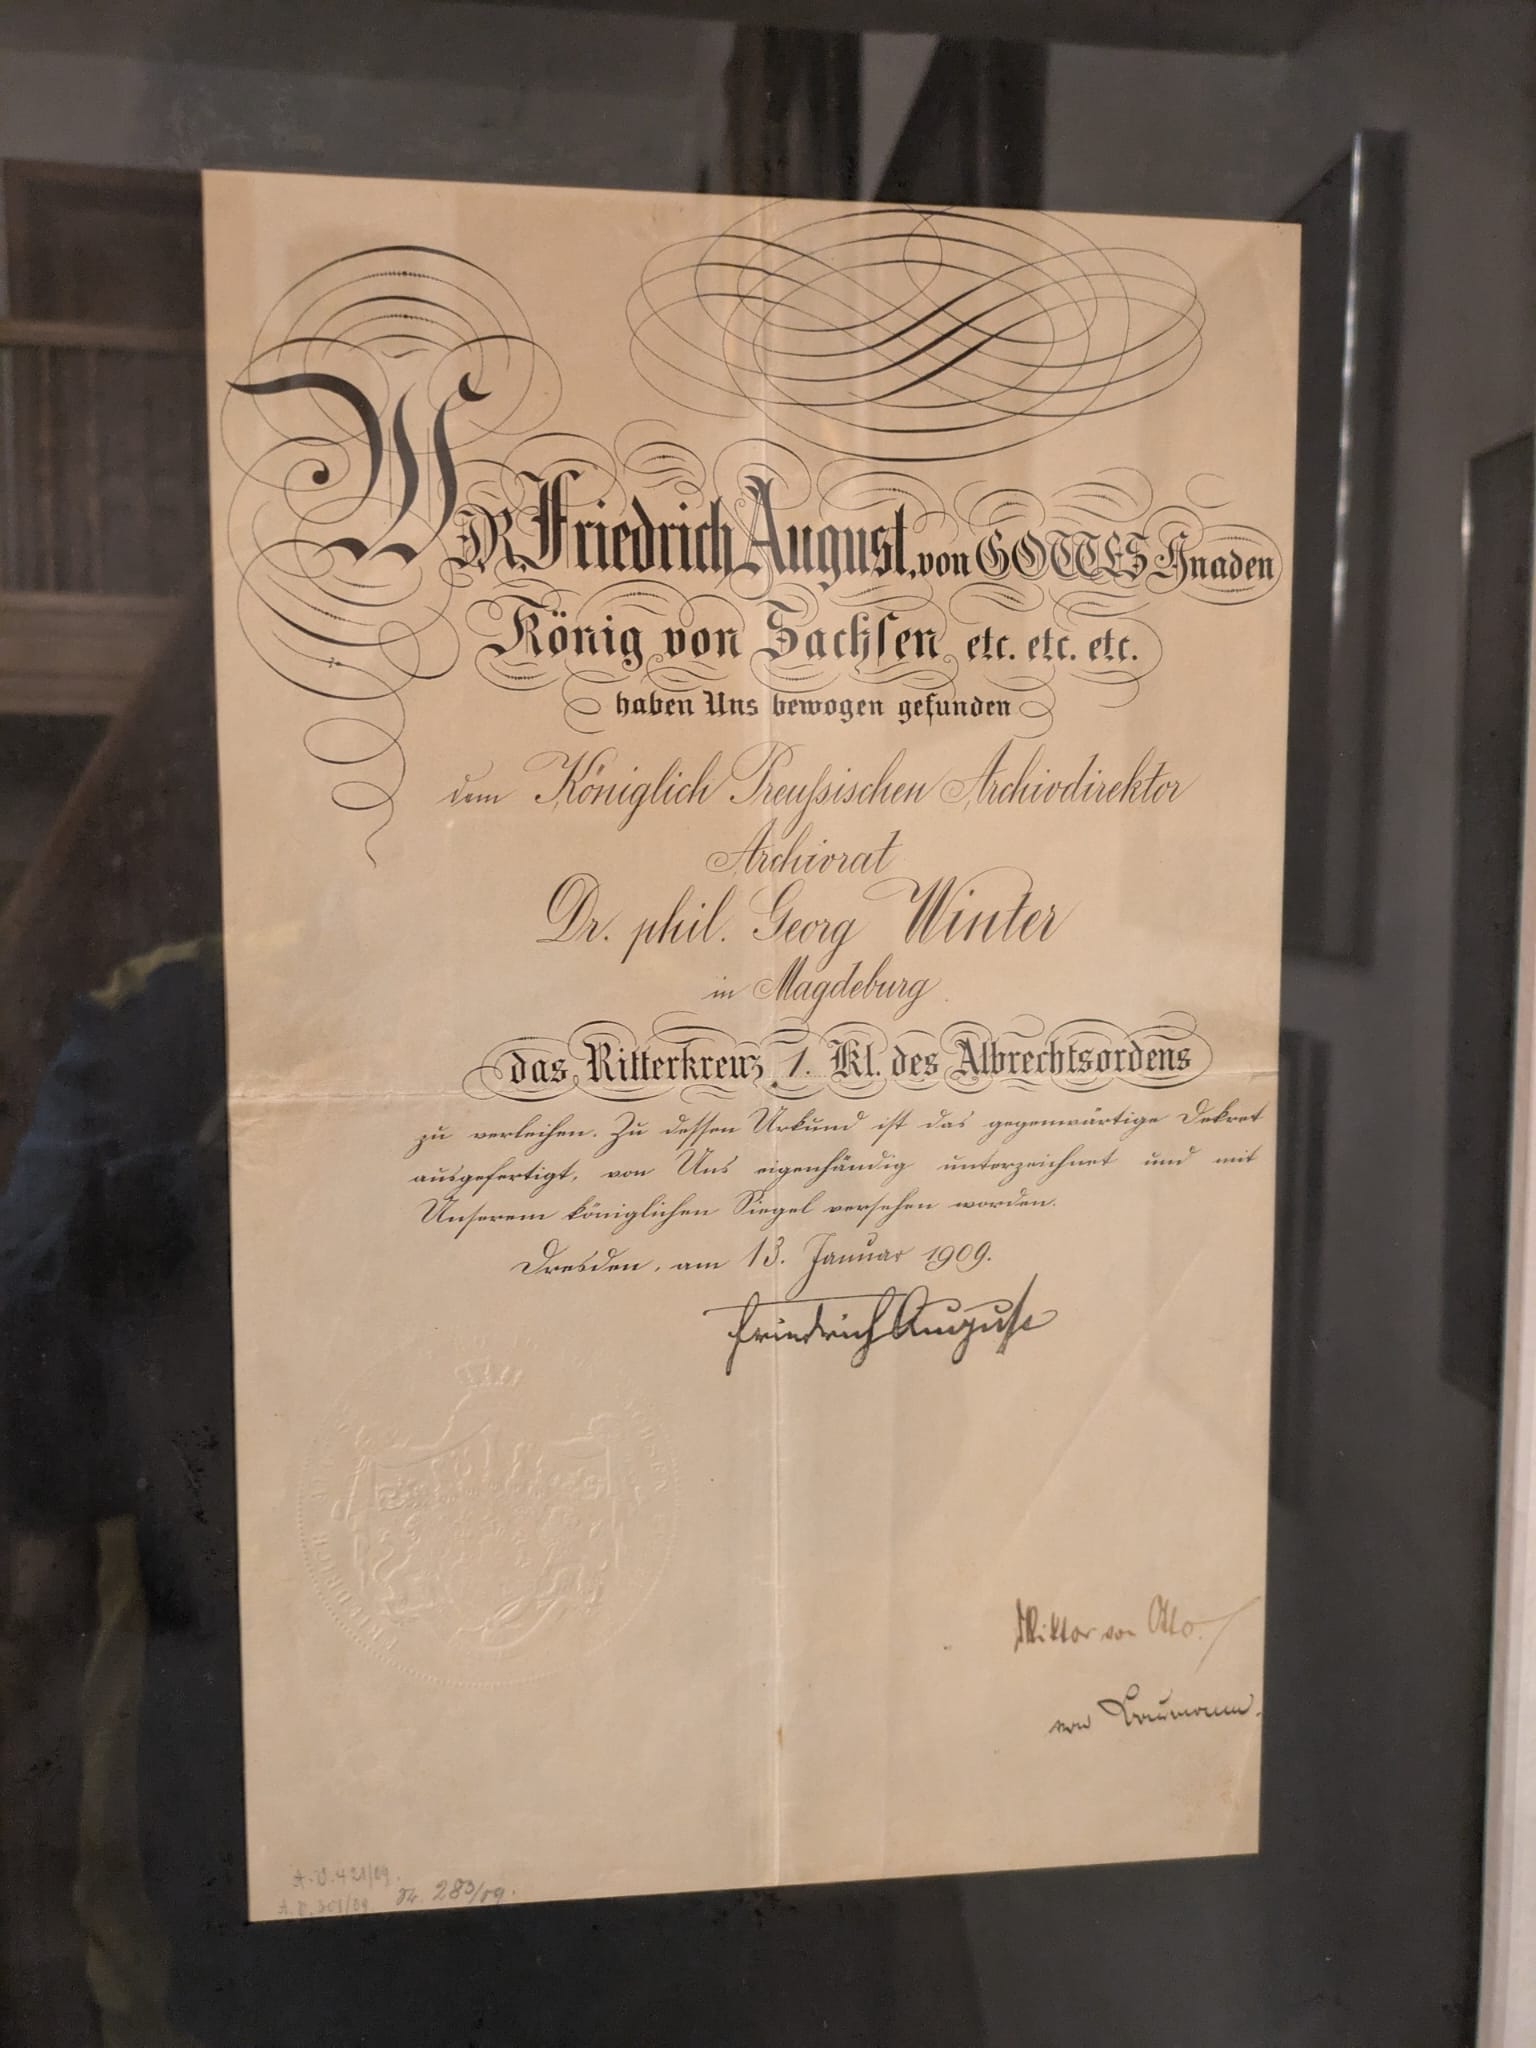 WIR, Friedrich August, von GOTTES Gnaden
König von Sachsen etc. etc. etc.
haben Uns bewogen gefunden
dem Königlich Preußischen Archivdirektor
Archivrat
Dr. phil. Georg Winter
in Magdeburg
das Ritterkreuz 1. Kl. des Albrechtsordens
zu verleihen. Zu dessen Urkund ist das gegenwärtige Dekret
ausgefertigt, von Uns eigenhändig unterzeichnet und mit
Unserem königlichen Siegel versehen worden.
Dresden, am 13. Januar 1909.
Friedrich August
Viktor von Otto.
von Baumann.
A. D. 421/09.
Nr. 283/09.